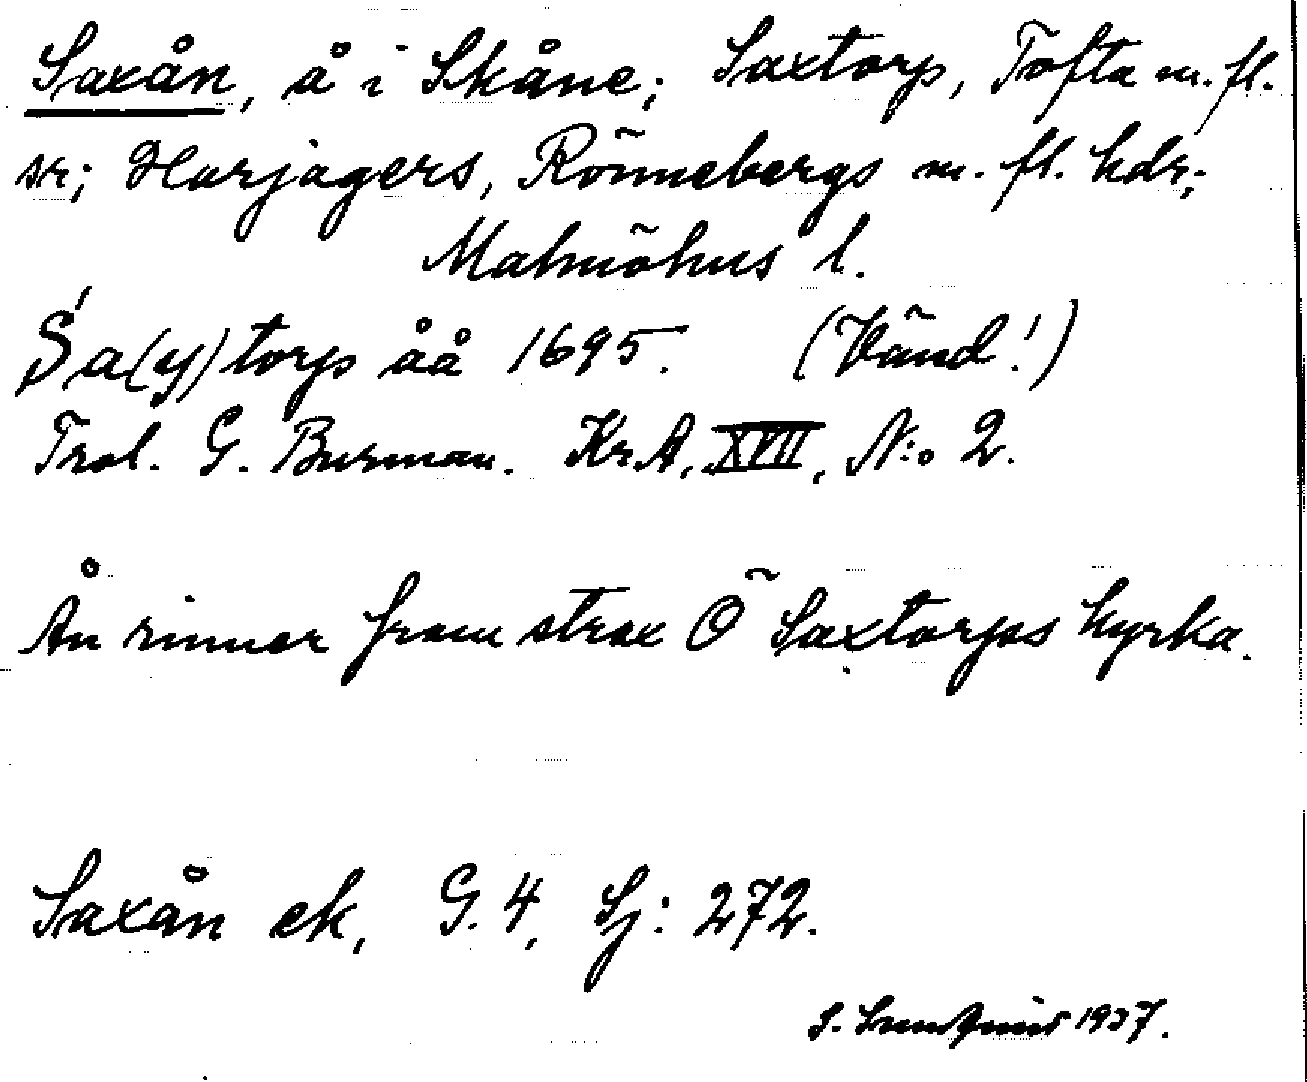 Saxån, å i Skåne; Saxtorp, Tofta m. fl.
sr; Harjagers, Rönnebergs m. fl. hdr;
Malmöhus l.
Sa(y)torp åå 1695. (Vänd!)
Trol. G. Burman. Kr.A, XVII, N:o 2.
Ån rinner fram strax Ö Saxtorps kyrka.
Saxån ek, G. 4, Sj: 272.
S. 1937.